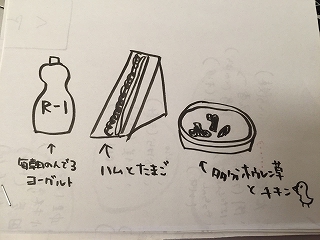 R-1
毎朝のんでる
ヨーグルト
ハムとたまご
ホウレン草
とチキン